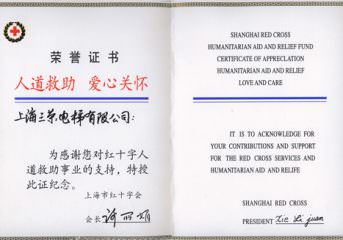 荣誉证书
人道救助 爱心关怀
上海三荣电梯有限公司：
为感谢您对红十字人
道救助事业的支持，特授
此证纪念。
上海市红十字会
会长
SHANGHAI RED CROSS
HUMANITARIAN AID AND RELIEF FUND
CERTIFICATE OF APPRECLATION
HUMANITARIAN AID AND RELIEF
LOVE AND CARE
IT IS TO ACKNOWLEDGE FOR
YOUR CONTRIBUTIONS AND SUPPORT
FOR THE RED CROSS SERVICES AND
HUMANITARIAN AID AND RELIFE
SHANGHAI RED CROSS
PRESIDENT